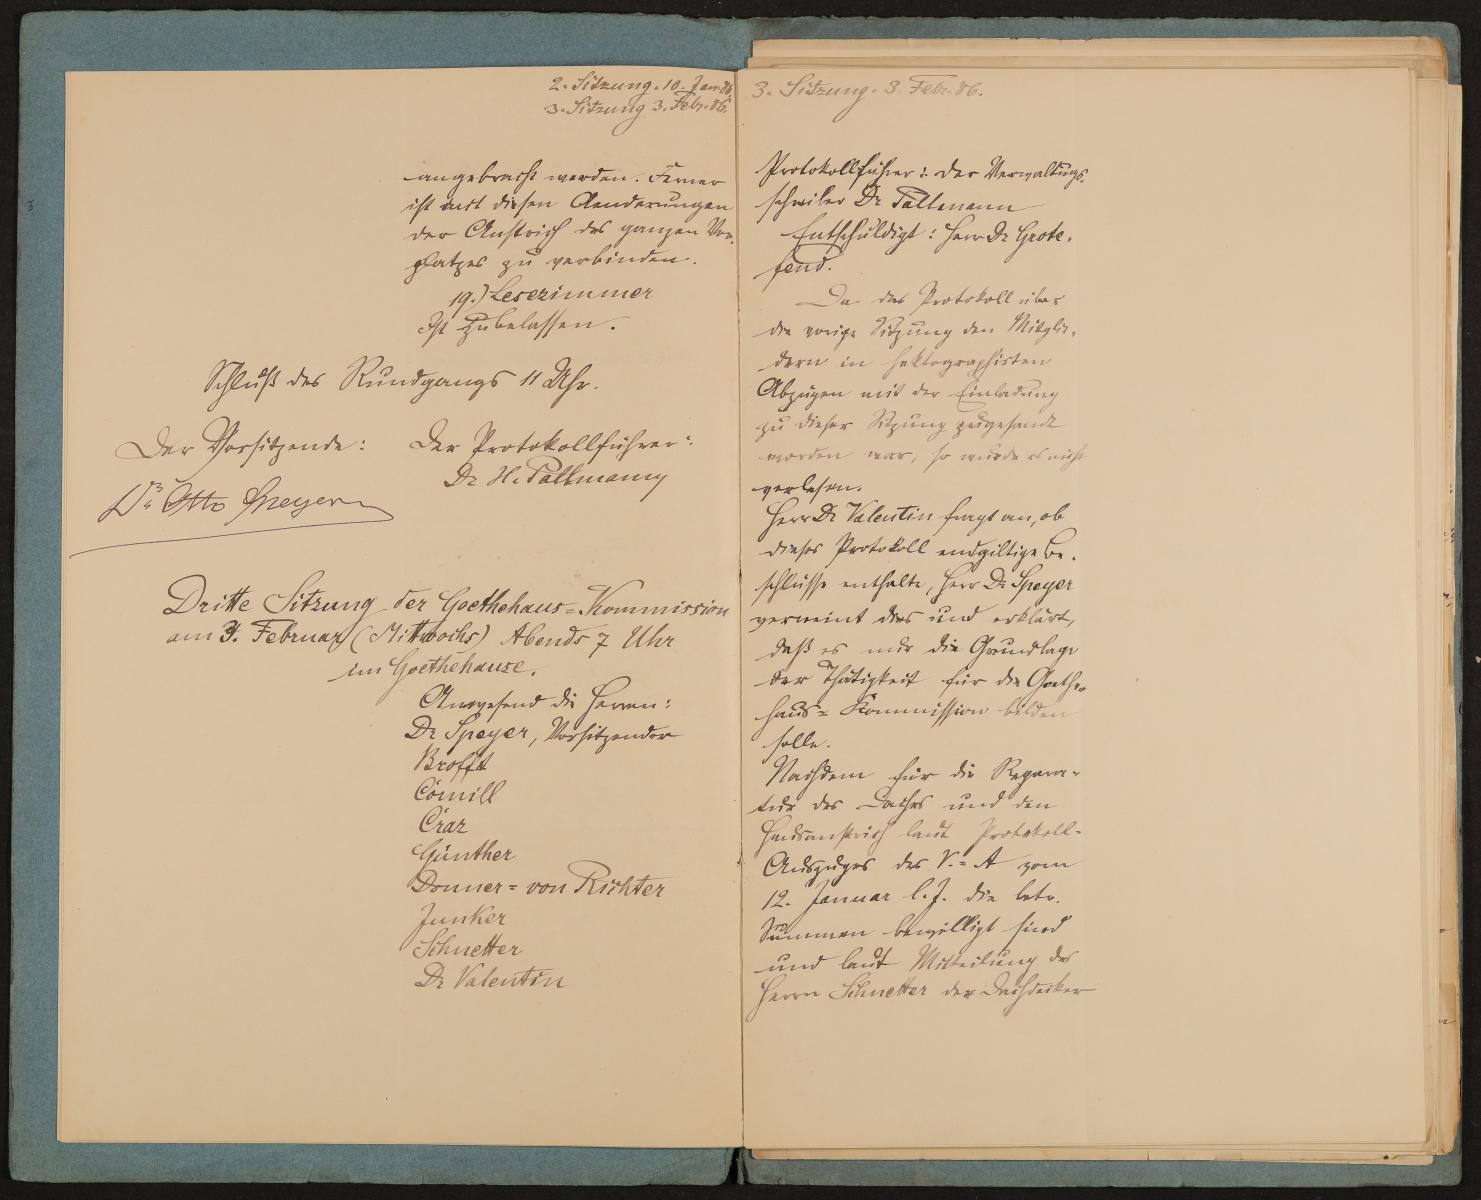 2. Sitzung. 10. Jan. 86.
3. Sitzung 3. Febr. 86.
angebracht werden. Ferner
ist mit diesen Aenderungen
der Anstrich des ganzen Vor-
platzes zu verbinden.
19.) Lesezimmer
Ist zu belassen.
Schluß des Rundgangs 11 Uhr.
Der Vorsitzende:
Dr. Otto Speyer
Der Protokollführer:
Dr H. Pallmann
Dritte Sitzung der Goethehaus=Kommission
am 3. Februar (Mittwochs) Abends 7 Uhr
im Goethehause.
Anwesend die Herren:
Dr Speyer, Vorsitzender
Brofft
Cornill
Craz
Günther
Donner=von Richter
Junker
Schnetter
Dr Valentin
3. Sitzung. 3. Febr. 86.
Protokollführer: der Verwaltungs-
schreiber Dr Pallmann
Entschuldigt: Herr Dr Grote-
fend.
Da das Protokoll über
die vorige Sitzung den Mitglie-
dern in hektographirten
Abzügen mit der Einladung
zu dieser Sitzung zugesandt
worden war, so wurde es nicht
verlesen.
Herr Dr Valentin fragt an, ob
dieses Protokoll endgiltige Be-
schlüsse enthalte, Herr Dr Speyer
verneint dies und erklärt,
daß es nur die Grundlage
der Thätigkeit für die Goethe-
haus=Kommission bilden
solle.
Nachdem für die Repara-
tur des Daches und den
Hausanstrich laut Protokoll-
Auszuges des V.=A vom
12. Januar l. J. die betr.
Summen bewilligt sind
und laut Mitteilung des
Herrn Schnetter der Dachdecker